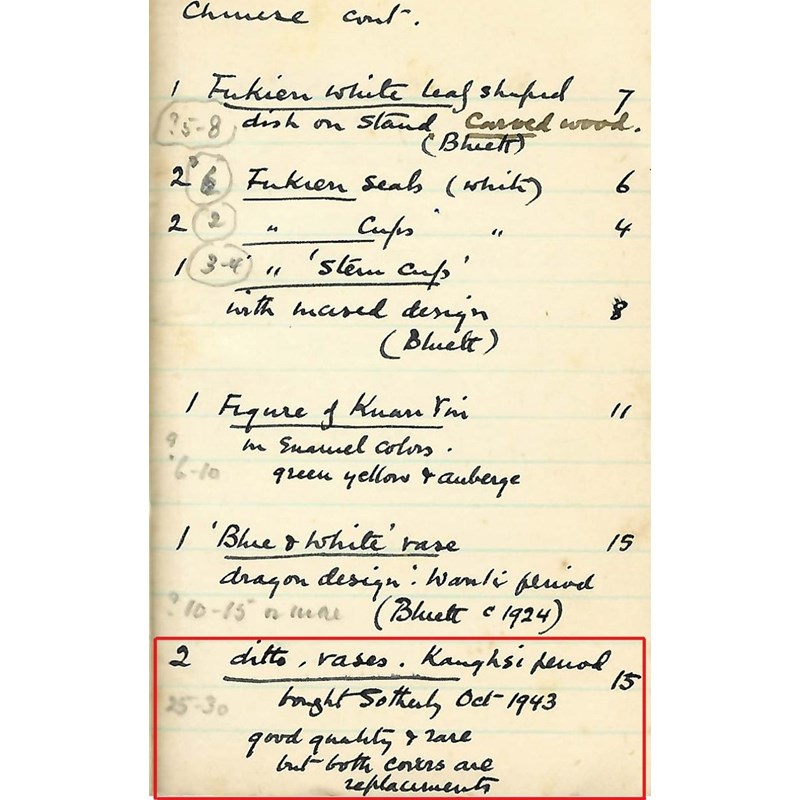 Chinese cont.
1 Fukien white leaf shaped 7
?5-8 dish on stand Carved wood.
(Bluett)
2 6 Fukien seals (white) 6
2 2 " Cups " 4
1 3-4 " 'Stem cups'
with incised design 8
(Bluett)
1 Figure of Kuan Yin 11
?
6-10 in Enamel colors.
green yellow & auberge
1 'Blue & White' vase 15
dragon design: Wanli period
?10-15 or more (Bluett c 1924)
2 ditto, vases. Kanghsi period 15
25-30 bought Sotheby Oct 1943
good quality & rare
but both covers are
replacements